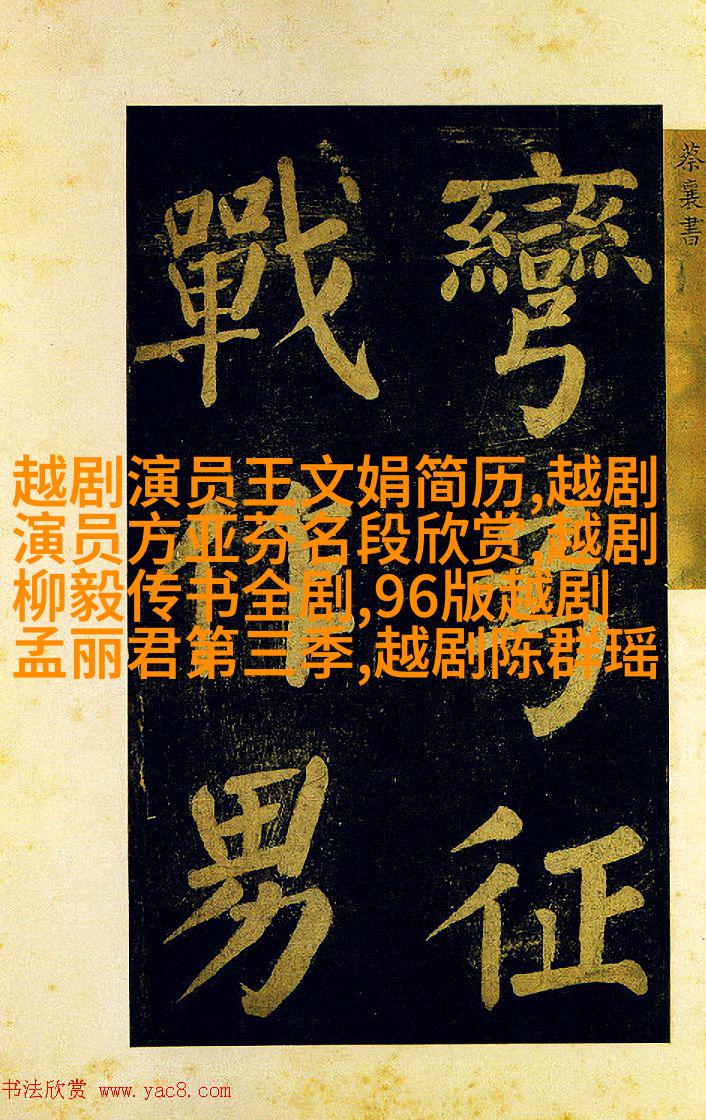 蔡襄書
彎弓征
戰作男
越剧演员王文娟简历,越剧
演员方亚芬名段欣赏,越剧
柳毅传书全剧,96版越剧
孟丽君第三季,越剧陈群瑶
书法欣赏 www.yac8.com